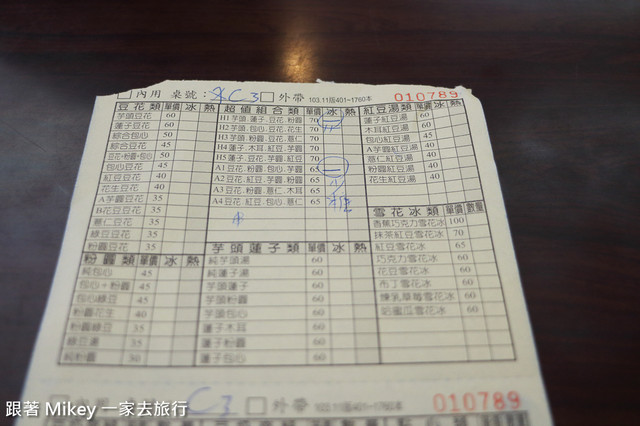 內用 桌號: C3 外帶 103.11版401~1760本 010789
豆花類 單價 冰 熱
芋頭豆花 60
蓮子豆花 60
綜合包心 50
綜合豆花 45
豆花+粉圓+包心 50
包心豆花 45
紅豆豆花 40
花生豆花 40
A芋豆花 35
B花豆豆花 35
薏仁豆花 35
綠豆豆花 35
粉圓豆花 35
粉圓類 單價 冰 熱
純包心 45
包心+粉圓 45
包心綠豆 45
粉圓花生 40
粉圓綠豆 35
綠豆湯 35
純粉圓 30
超值組合類 單價 冰 熱
H1芋頭.蓮子.豆花.粉圓 70
H2芋頭.包心.豆花.花生 70
H3芋頭.粉圓.豆花.薏仁 70
H4蓮子.木耳.紅豆.芋圓 70
H5蓮子.豆花.芋圓.紅豆 70
A1豆花.粉圓.包心.芋圓 65
A2豆花.紅豆.芋圓.粉圓 65
A3豆花.粉圓.薏仁.木耳 65
A4豆花.紅豆.包心.薏仁 65
芋頭蓮子類 單價 冰 熱
純芋頭湯 60
純蓮子湯 60
芋頭蓮子 60
芋頭粉圓 60
芋頭包心 60
蓮子木耳 60
蓮子粉圓 60
蓮子包心 60
紅豆湯類 單價 冰 熱
蓮子紅豆湯 60
木耳紅豆湯 40
包心紅豆湯 45
A芋紅豆湯 40
薏仁紅豆湯 40
粉圓紅豆湯 40
花生紅豆湯 40
雪花冰類 單價 數量
香蕉巧克力雪花冰 100
抹茶紅豆雪花冰 70
紅豆雪花冰 65
巧克力雪花冰 60
花豆雪花冰 60
布丁雪花冰 60
煉乳草莓雪花冰 60
哈蜜瓜雪花冰 60
內用 桌號: C3 外帶 103.11版401~1760本 010789
跟著 Mikey 一家去旅行